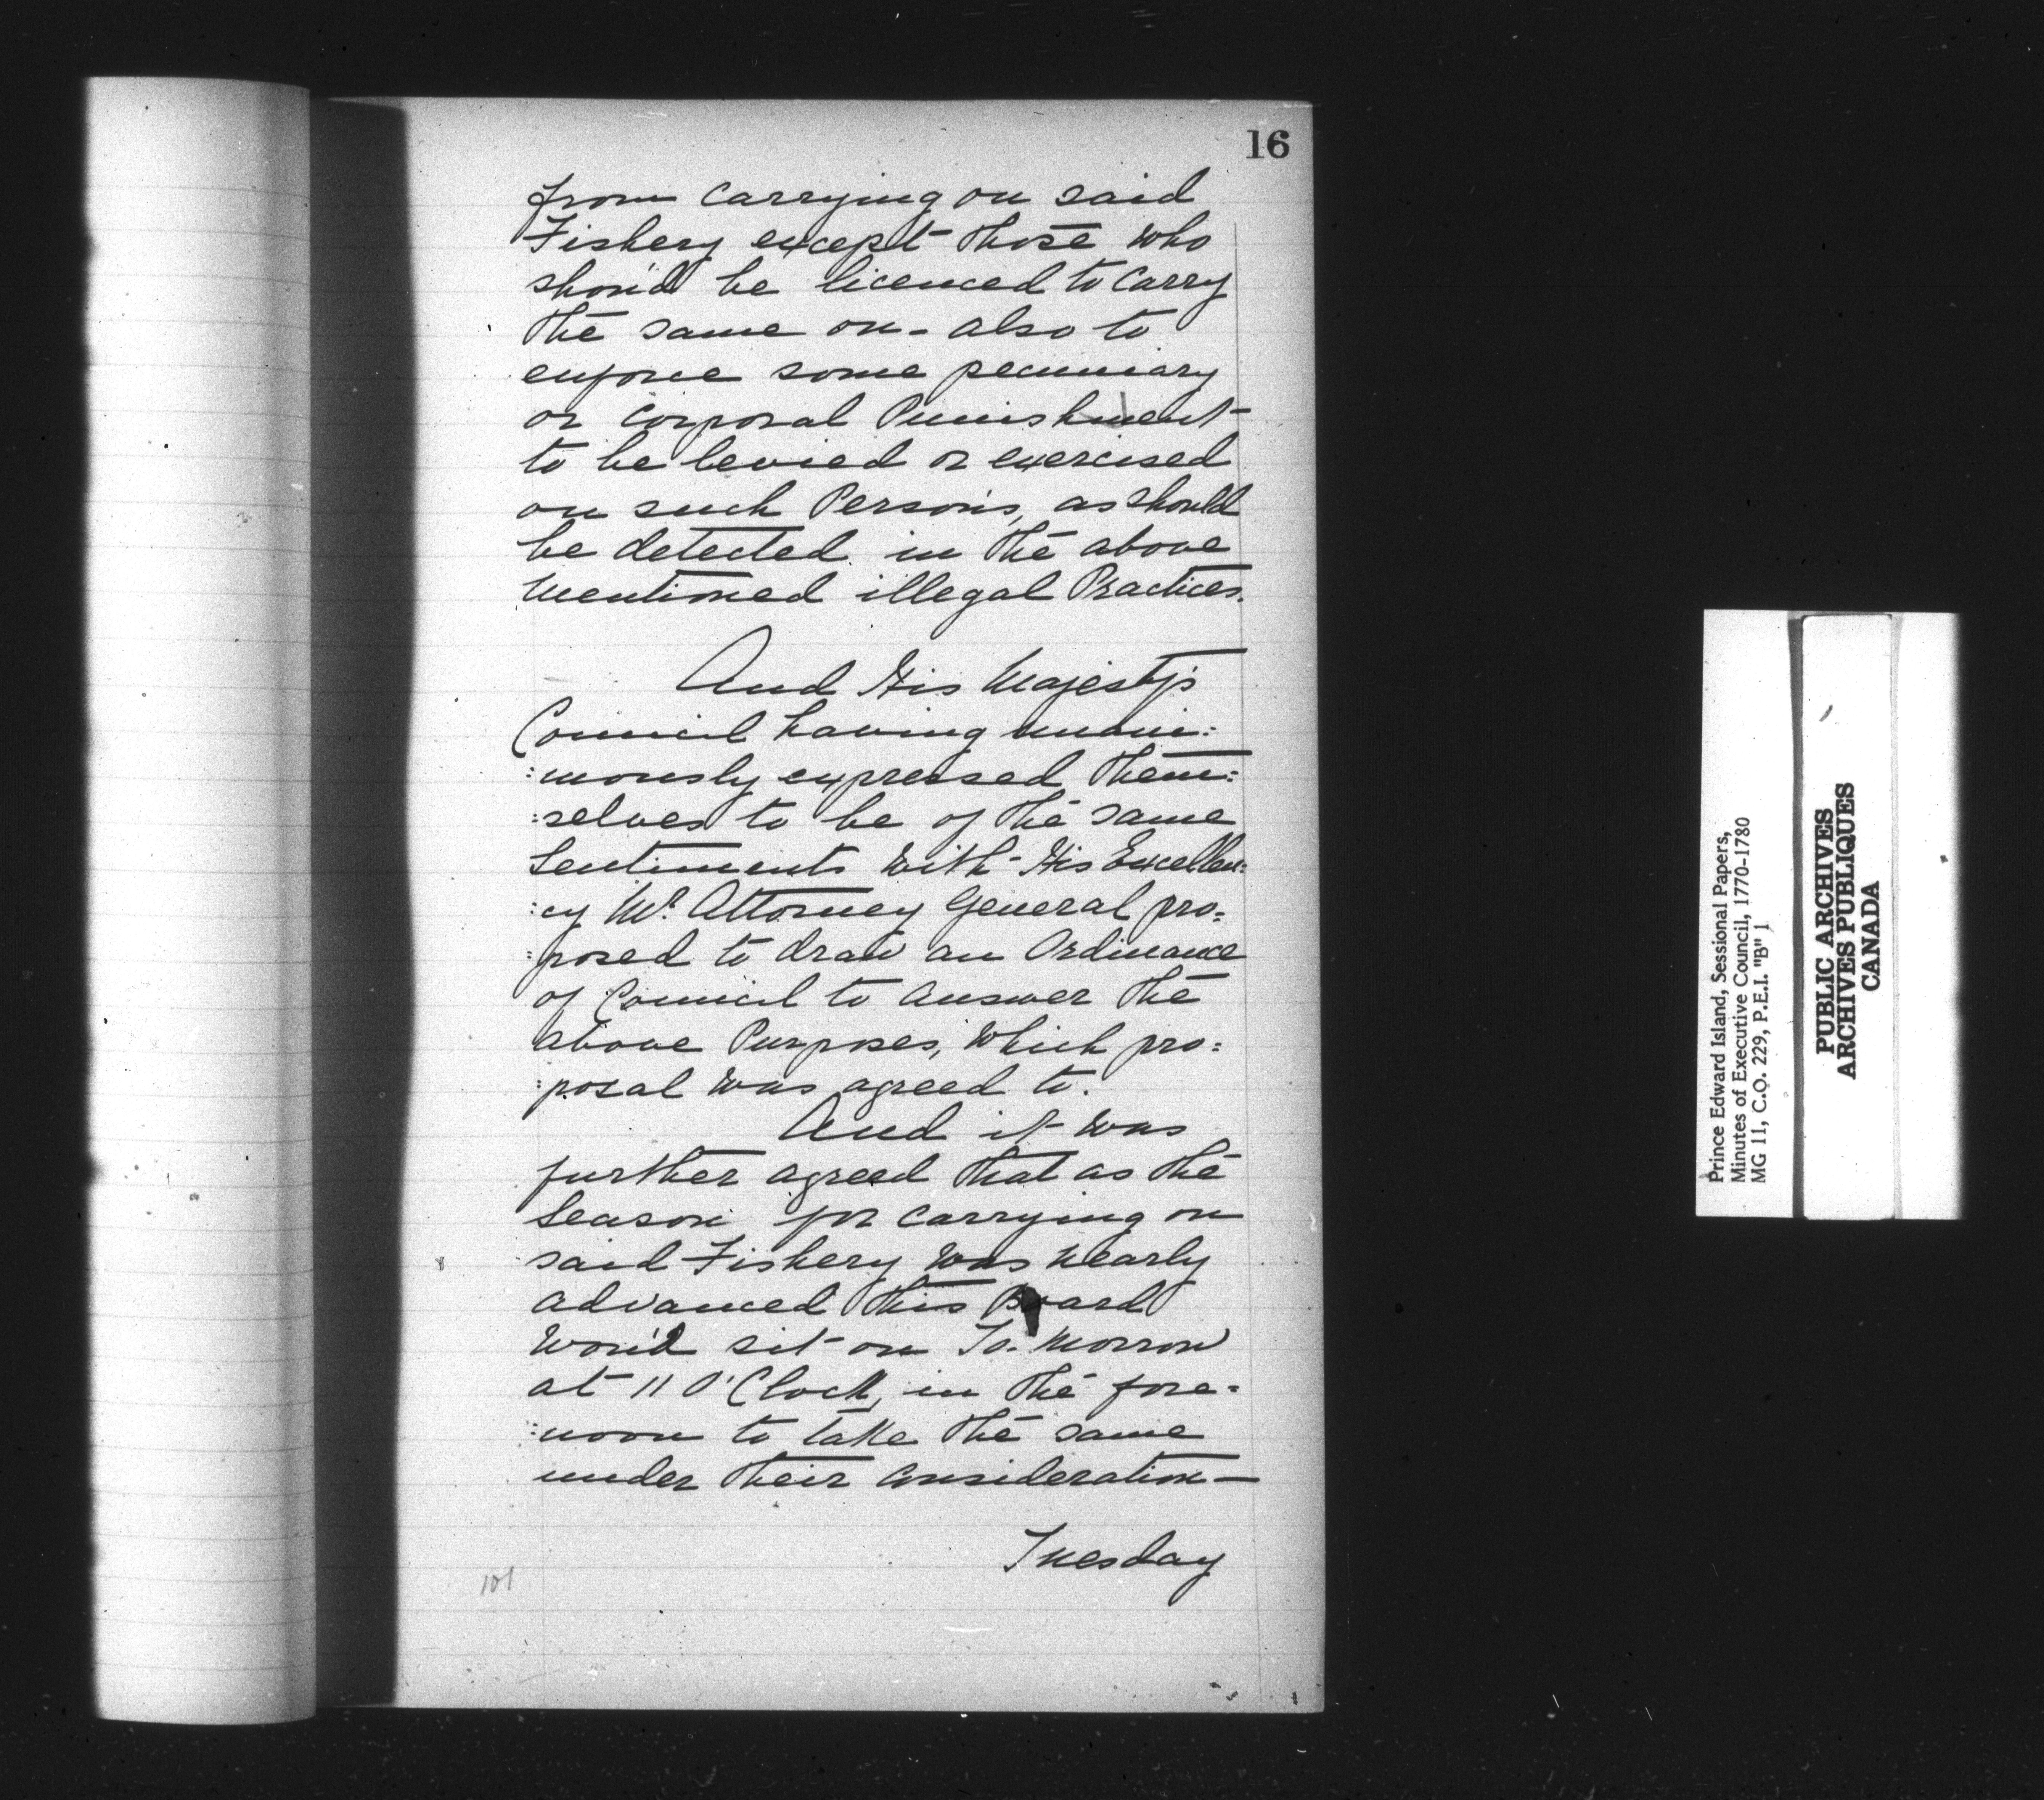 16
from carrying on said
Fishery except those who
shou'd be licenced to carry
the same on - also to
enforce some pecuniary
or corporal Punishment
to be levied or exercised
on such Persons, as should
be detected in the above
mentioned illegal Practices.
And His Majesty's
Council having unani:
:mously expressed them:
:selves to be of the same
Sentiments with His Excellen:
:cy Mr. Attorney General pro:
:posed to draw an Ordinance
of Council to answer the
above Purposes, which pro:
:posal was agreed to.
And it was
further agreed that as the
Season for carrying on
said Fishery was nearly
advanced this Board
wou'd sit on To-morrow
at 11 O'Clock, in the fore:
:noon to take the same
under their consideration —
Tuesday
101
Prince Edward Island, Sessional Papers,
Minutes of Executive Council, 1770-1780
MG 11, C.O. 229, P.E.I. "B" 1
PUBLIC ARCHIVES
ARCHIVES PUBLIQUES
CANADA